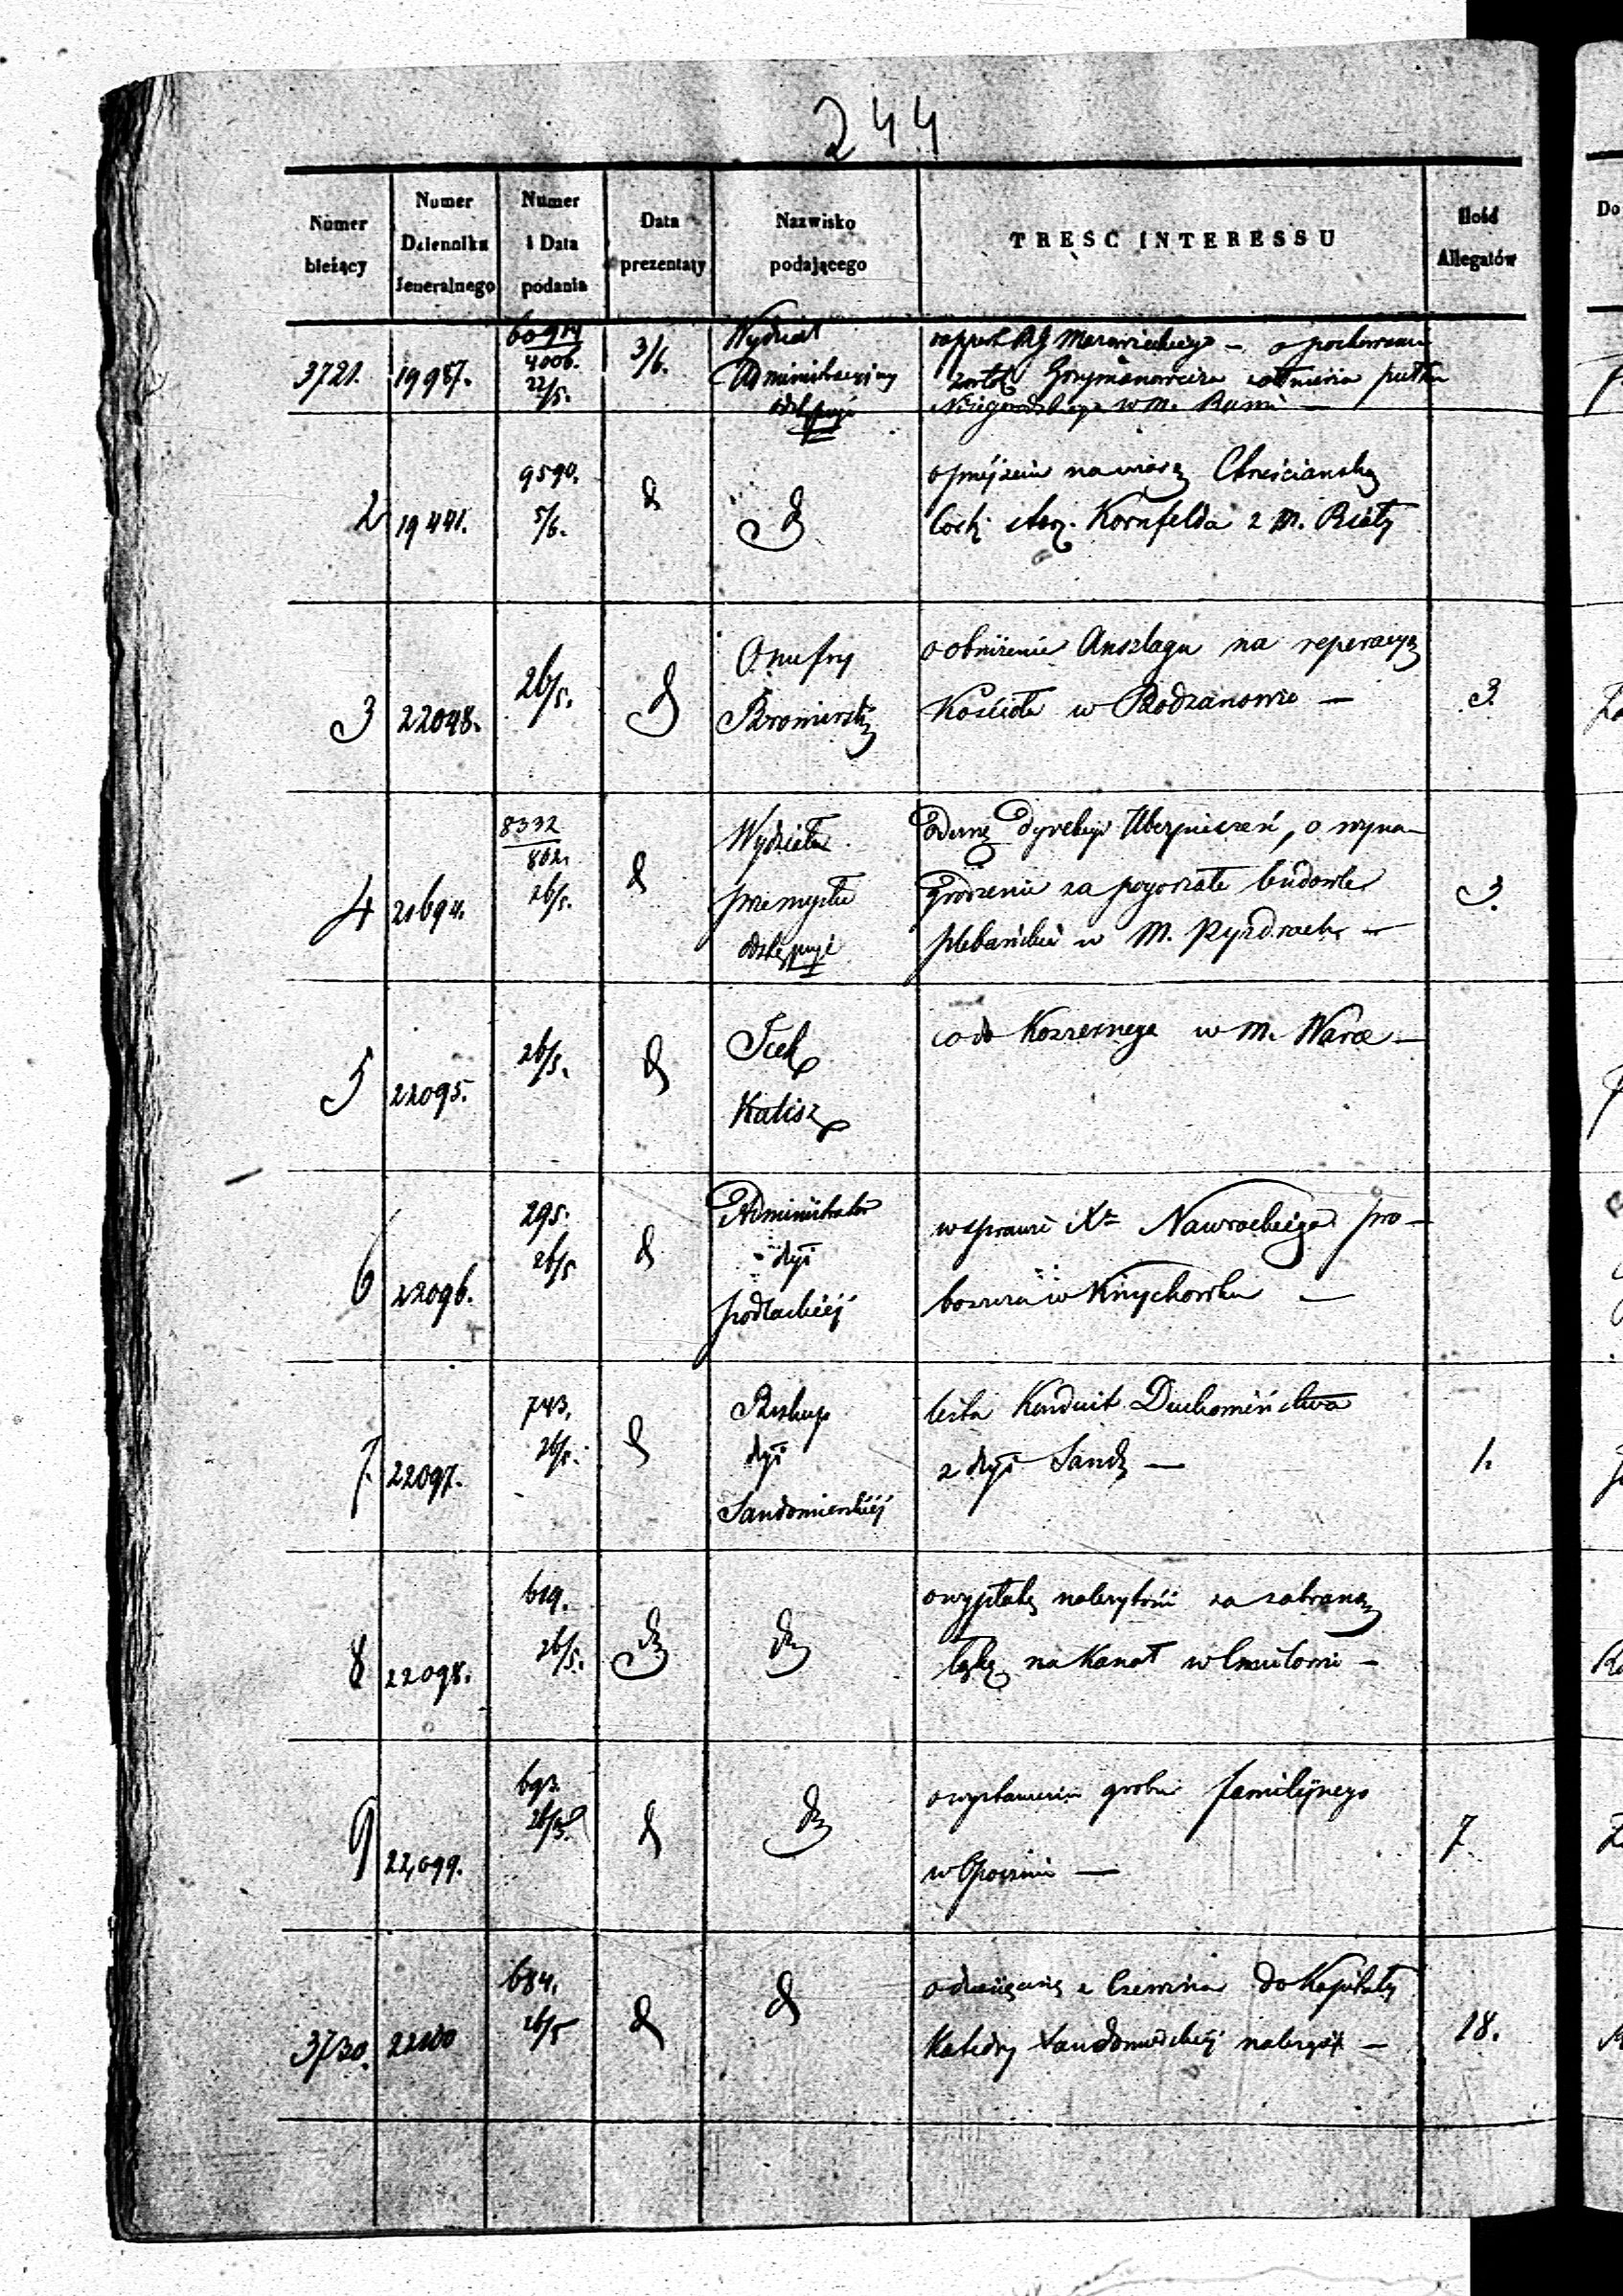 244
Numer bieżący
Numer Dziennika Jeneralnego
Numer i Data podania
Data prezentaty
Nazwisko podającego
TREŚĆ INTERESSU
Ilość Allegatów
Do
3721. 19987. 4006. 22/5. 3/6. Wydział Administracyjny odstępuje
rapport RG Mazowieckiego — o pochowaniu
zwłok żołnierza pułku
w M.
2 19441. 9590. 5/6. d d
na wiarę Chrześciańską
Córki Kornfelda z M. Biały
3 22048. 26/5. d Onufry Bromirski
o obniżenie Anszlagu na reperacyą
Kościoła w Bodzanowie — 3.
4 21694. 8332 862. 26/5. d Wydział przemysłu odstępuje
odezwę Dyrekcyi Ubezpieczeń, o wyna-
grodzenie za pogorzałe budowle
plebańskie w M. Pyzdrach — 3.
5 22095. 26/5. d Icek Kalisz
co do Koszernego w M. Warce —
6 22096. 295. 26/5 d Administrator dyi podlaskiéj
w sprawie Xa Nawrockiego pro-
boszcza w Knychówku —
7. 22097. 743. 26/5. d Biskup dyi Sandomierskiéj
lista Konduit Duchowieństwa
z dyi Sand — 1.
8 22098. 619. 26/5. do do
o wypłatę należytości za zabraną
łąkę na Kanał w
9 22,099. 693. 26/5. d do
o wystawienie grobu familijnego
w Opocznie — 7
3730. 22100 684. 26/5 d d
z Czerwina do Kapituły
Katedry Sandomirskiéj — 18.